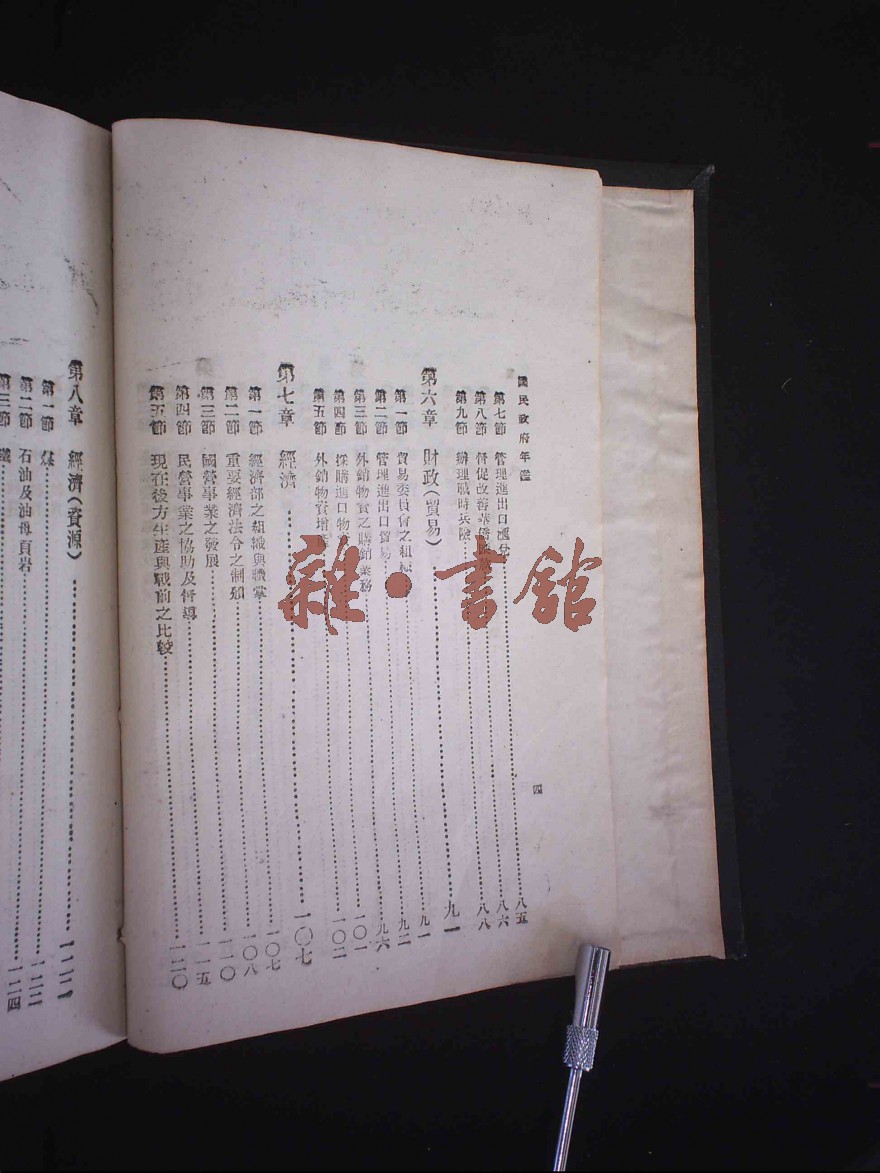 國民政府年鑑
四
第七節 管理進出口滙兌 八五
第八節 督促改善華僑 八六
第九節 辦理戰時兵險 八八
第六章 財政(貿易) 九一
第一節 貿易委員會之組織 九一
第二節 管理進出口貿易 九二
第三節 外銷物資之購銷業務 九六
第四節 採購進口物 一〇一
第五節 外銷物資增產 一〇二
第七章 經濟 一〇七
第一節 經濟部之組織與職掌 一〇七
第二節 重要經濟法令之制頒 一〇八
第三節 國營事業之發展 一一〇
第四節 民營事業之協助及督導 一一五
第五節 現在後方生產與戰前之比較 一二〇
第八章 經濟(資源) 一二二
第一節 煤 一二二
第二節 石油及油母頁岩 一二四
第三節 鐵
雜·書館